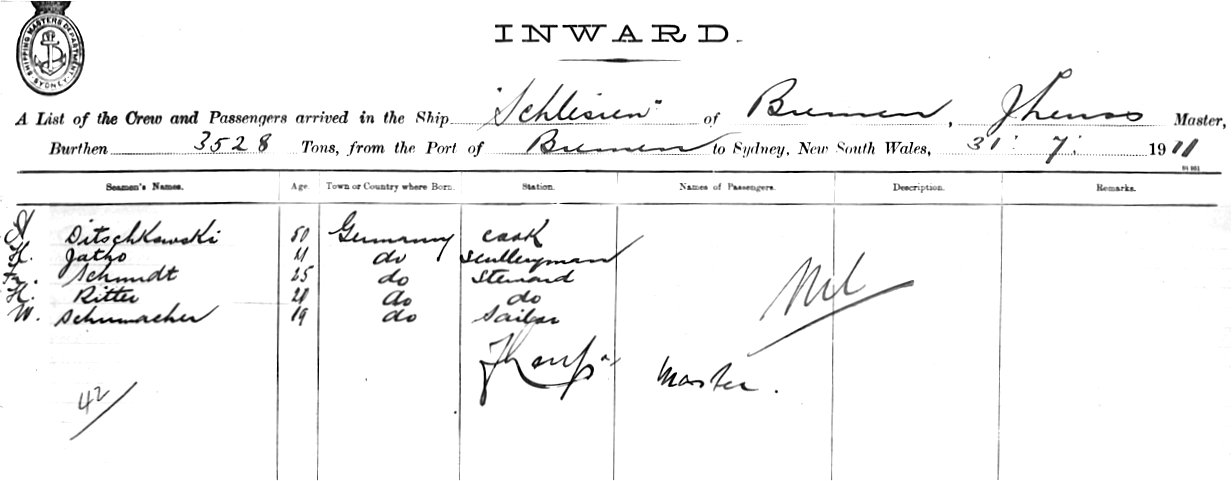 SHIPPING MASTERS DEPARTMENT SYDNEY
INWARD.
A List of the Crew and Passengers arrived in the Ship "Schlesien" of Bremen, Master,
Burthen 3528 Tons, from the Port of Bremen to Sydney, New South Wales, 31: 7: 1911
Seamen's Names. Age. Town or Country where Born. Station. Names of Passengers. Description. Remarks.
A Ditschkowski 50 Germany Cook
H. Jatho 21 do Sculleryman Nil
Fr. Schmidt 25 do Steward
H. Ritter 20 do do
W. Schumacher 19 do Sailor
Master.
42